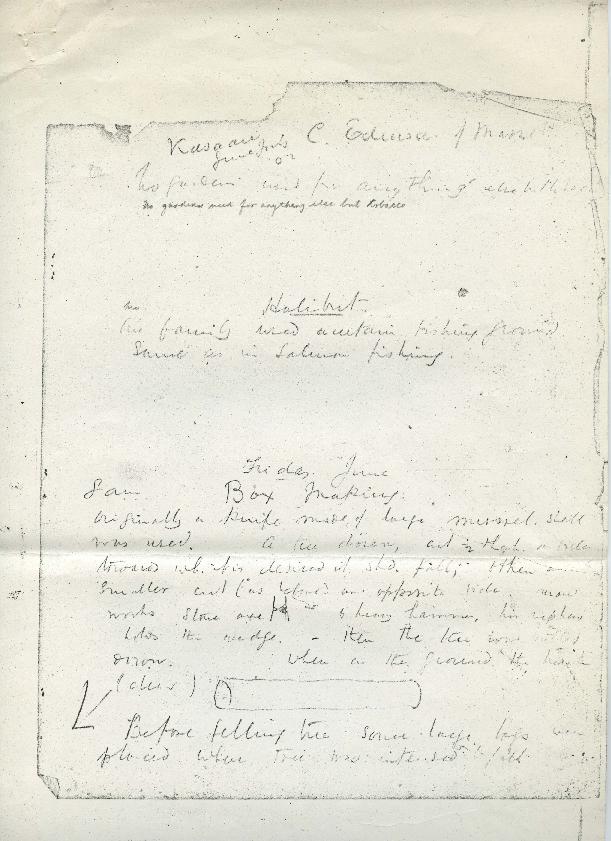 Kasaan C. Edensaw of Masset
June
No gardens used for anything else but tobacco
no gardens used for anything else but tobacco
Halibut
the family used a certain fishing ground
Same as in Salmon fishing.
Friday June
Sam Box Making.
Originally a knife made of large mussel shell
was used. A tree chosen, cut
towards desired it shd. fall, then
smaller cut (as before) on opposite side. man
works stone axe & heavy hammer, his nephew
holds the wedge. - then the tree
down. when on the ground the
Before felling tree some large logs were
placed where tree was intended fall